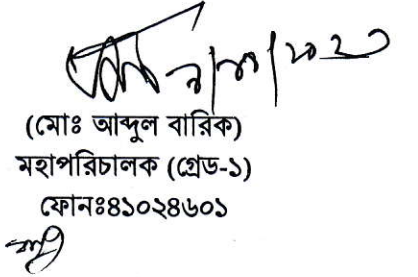 (মোঃ আব্দুল বারিক)
মহাপরিচালক (গ্রেড-১)
ফোনঃ৪১০২৪৬০১